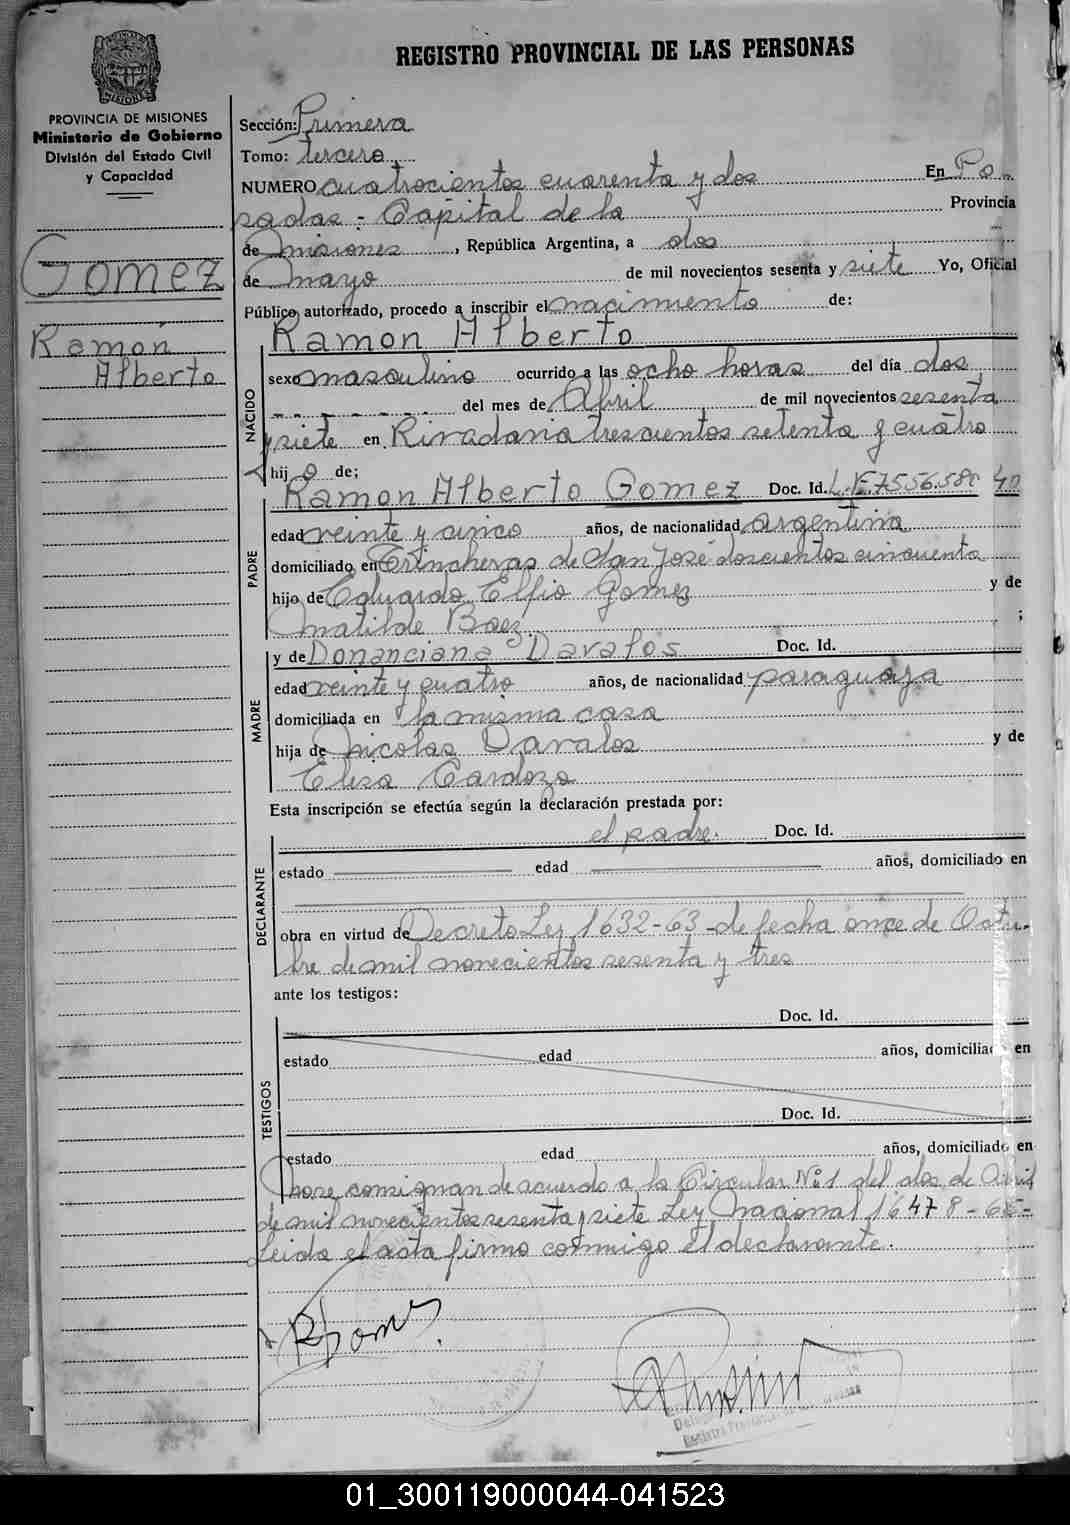 REGISTRO PROVINCIAL DE LAS PERSONAS
MISIONES
PROVINCIA DE MISIONES
Ministerio de Gobierno
División del Estado Civil
y Capacidad
Gomez
Ramón
Alberto
Sección: Primera
Tomo: tercero
NUMERO cuatrocientos cuarenta y dos En Po-
sadas - Capital de la Provincia
de misiones, República Argentina, a dos
de mayo de mil novecientos sesenta y siete Yo, Oficial
Público autorizado, procedo a inscribir el nacimiento de:
Ramon Alberto
NACIDO
sexo masculino ocurrido a las ocho horas del día dos
del mes de Abril de mil novecientos sesenta
y siete en Rivadavia trescientos setenta y cuatro
hijo de;
PADRE
Ramon Alberto Gomez Doc. Id. L.E.7556.58
edad veinte y cinco años, de nacionalidad argentina
domiciliado en Trincheras de San José doscientos cincuenta
hijo de Eduardo Elfio Gomez y de
matilde Baez ;
MADRE
y de Donanciana Davalos Doc. Id.
edad veinte y cuatro años, de nacionalidad paraguaya
domiciliada en la misma casa
hija de nicolas Davalos y de
Elisa Cardozo
Esta inscripción se efectúa según la declaración prestada por:
DECLARANTE
el padre. Doc. Id.
estado edad años, domiciliado en
obra en virtud de Decreto Ley 1632-63-de fecha once de Octu-
bre de mil novecientos sesenta y tres
ante los testigos:
TESTIGOS
Doc. Id.
estado edad años, domiciliado en
Doc. Id.
estado edad años, domiciliado en
no se consignan de acuerdo a la Circular Nº1 del dos de Abril
de mil novecientos sesenta y siete Ley nacional 16478-
Leida el acta firma conmigo el declarante.
RGomez
01_300119000044-041523